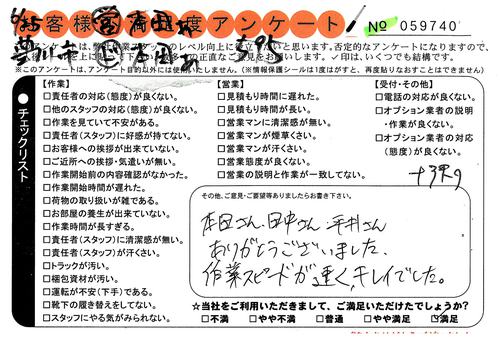 お客様満足度アンケート
№ 059740
※このアンケートは、アンケート目的以外には使用いたしません。(※情報保護シールは1度がすと、再度貼りなおすことはできません)
チェックリスト
【作業】
□責任者の対応(態度)が良くない。
□他のスタッフの対応(態度)が良くない。
□作業を見ていて不安がある。
□責任者(スタッフ)に好感が持てない。
□お客様への挨拶が出来ていない。
□ご近所への挨拶・気遣いが無い。
□作業開始前の内容確認がなかった。
□作業開始時間が遅れた。
□荷物の取り扱いが雑である。
□お部屋の養生が出来ていない。
□作業時間が長すぎる。
□責任者(スタッフ)に清潔感が無い。
□責任者(スタッフ)が汗くさい。
□トラックが汚い。
□梱包資材が汚い。
□運転が不安(下手)である。
□靴下の履き替えをしてない。
□スタッフにやる気がみられない。
【営業】
□見積もり時間に遅れた。
□見積もり時間が長い。
□営業マンに清潔感が無い。
□営業マンが煙草くさい。
□営業マンが汗くさい。
□営業態度が良くない。
□営業の説明と作業が一致してない。
【受付・その他】
□電話の対応が良くない。
□オプション業者の説明
・作業が良くない。
□オプション業者の対応
(態度)が良くない。
その他、ご意見・ご要望等ありましたらお書き下さい。
本田さん、田中さん、平井さん
ありがとうございました、
作業スピードが速く、キレイでした。
☆当社をご利用いただきまして、ご満足いただけたでしょうか?
□不満 □やや不満 □普通 □やや満足 ☑満足